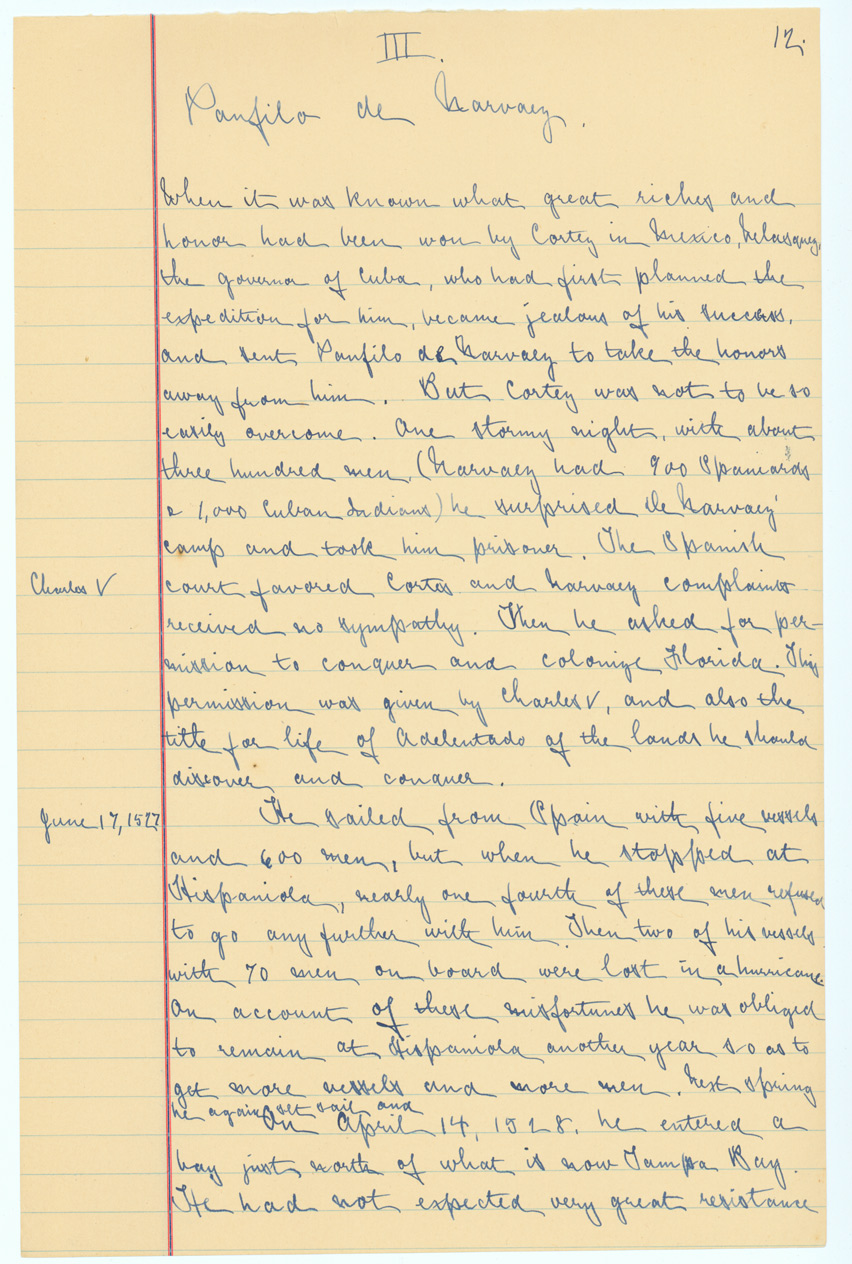 III.
12.
Panfilo de Narvaez.
When it was known what great riches and
honor had been won by Cortez in Mexico, Velasquez,
the governor of Cuba, who had first planned the
expedition for him, became jealous of his success,
and sent Panfilo de Narvaez to take the honors
away from him. But Cortez was not to be so
easily overcome. One stormy night, with about
three hundred men, (Narvaez had 900 Spaniards
& 1,000 Cuban Indians) he surprised de Narvaez'
camp and took him prisoner. The Spanish
Charles V
court favored Cortes and Narvaez complaints
received no sympathy. Then he asked for per-
mission to conquer and colonize Florida. This
permission was given by Charles V, and also the
title for life of Adelentado of the lands he should
discover and conquer.
June 17, 1527
He sailed from Spain with five vessels
and 600 men, but when he stopped at
Hispaniola, nearly one fourth of these men refused
to go any further with him. Then two of his vessels
with 70 men on board were lost in a hurricane.
On account of these misfortunes he was obliged
to remain at Hispaniola another year so as to
get more vessels and more men. Next spring
he again set sail and
On April 14, 1528, he entered a
bay just north of what is now Tampa Bay.
He had not expected very great resistance